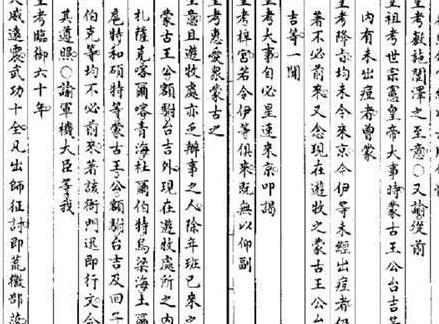 皇考敷錫闓澤之至意○又諭從前
皇祖考世宗憲皇帝大事時蒙古王公台吉等
內有未出痘者曾蒙
皇考降旨均未令來京今伊等未經出痘者仍
著不必前來又念現在遊牧之蒙古王公台
吉等一聞
皇考大事自必星速來京叩謁
皇考梓宮若令伊等俱來既無以仰副
皇考惠愛衆蒙古之
至意且遊牧處亦乏辦事之人除年班已來之
蒙古王公額駙台吉外現在遊牧處所之內
札薩克喀爾喀青海杜爾伯特烏梁海土爾
扈特和碩特等蒙古王公額駙台吉及回子
伯克等均不必前來著該衙門迅即行文令
其遵照○諭軍機大臣等我
皇考臨御六十年
天威遠震武功十全凡出師征討即荒徼部落